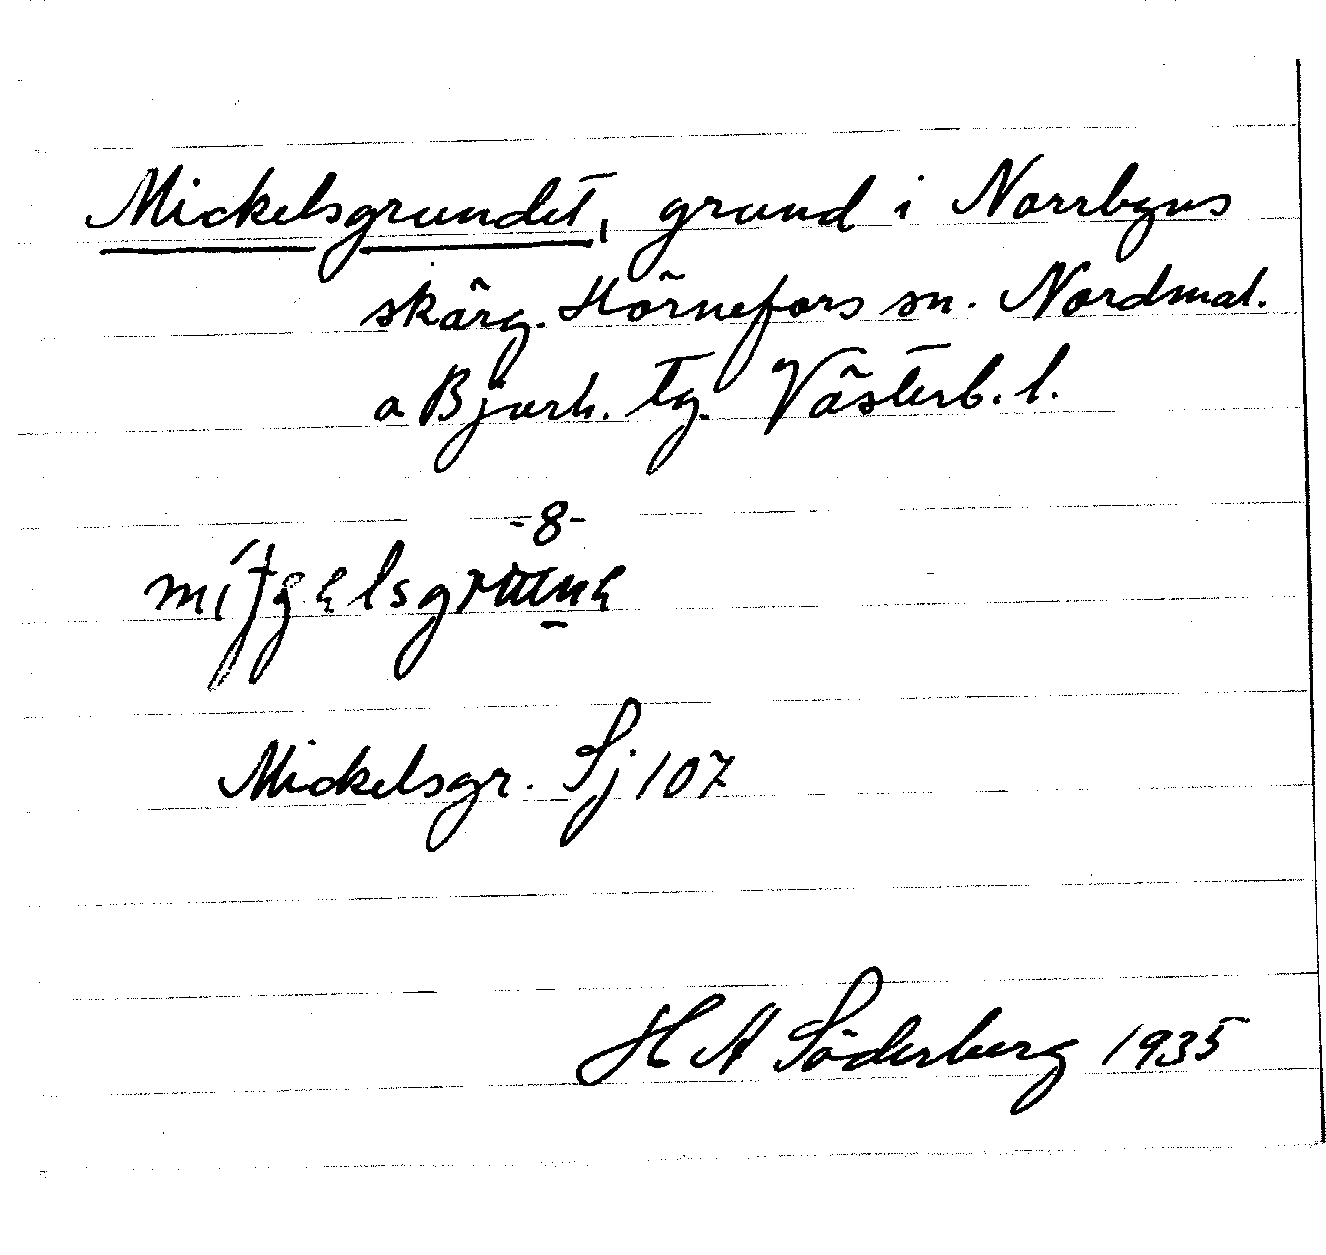 Mickelsgrundet, grund i Norrbyns
skärg. Hörnefors sn. Nordmal.
o Bjurh. tg. Västerb. l.
-8-
Mickelsgr. Sj 107
H A Söderberg 1935